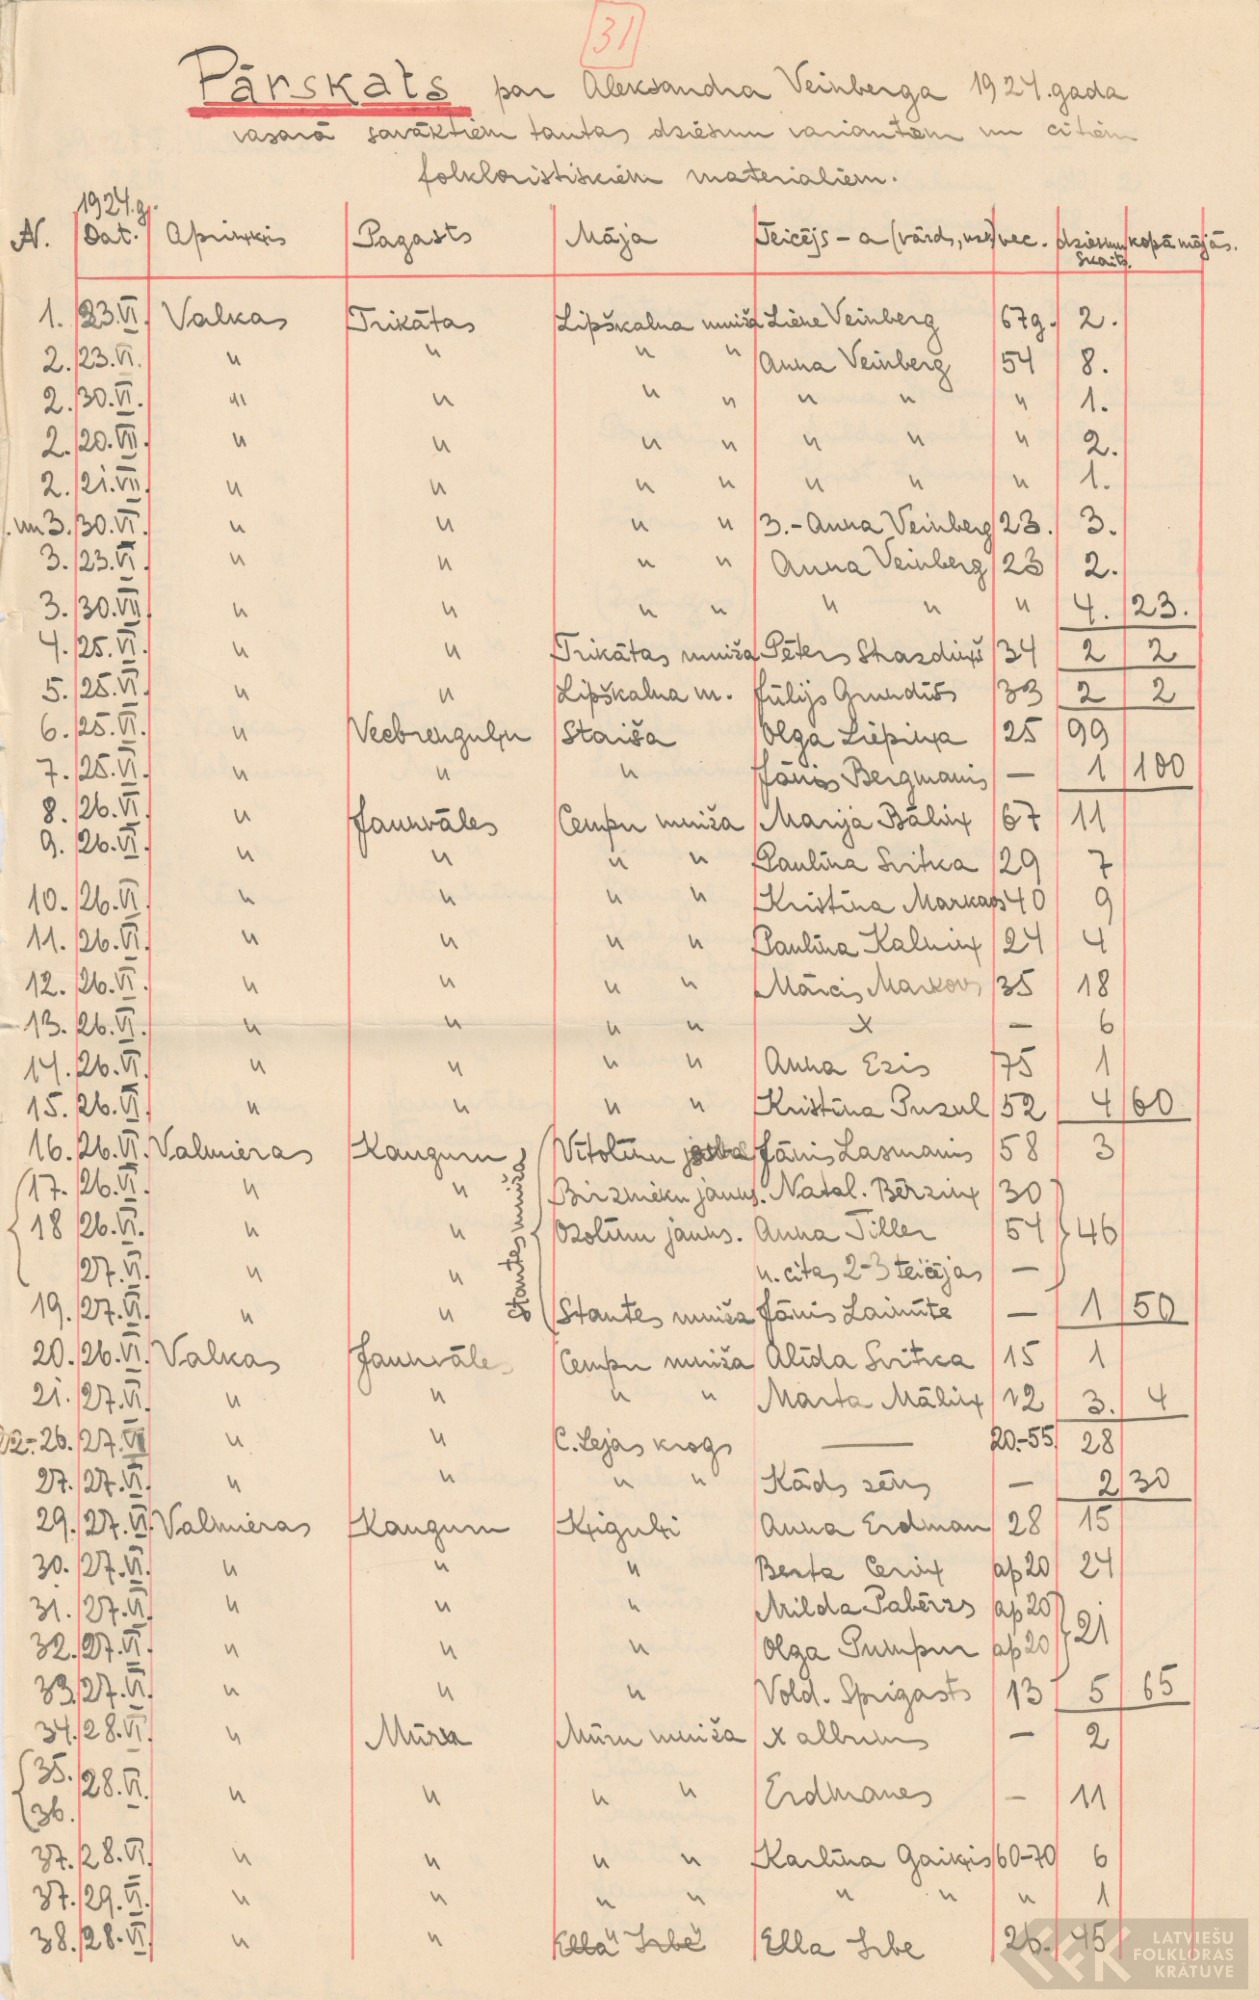 31
Pārskats par Aleksandra Veinberga 1924.gada
vasarā savāktiem tautas dziesmu variantiem un citiem
folkloristiskiem materialiem.
1924.g.
N. Dat. Apriņķis Pagasts Māja Teicējs-a (vārds, uzv) vec. dziesmu skaits. kopā mājās.
1. 23.VI. Valkas Trikātas Lipškalna muiža Liene Veinberg 67g. 2.
2. 23.VI. " " " " Anna Veinberg 54 8.
2. 30.VI. " " " " " " " 1.
2. 20.VII. " " " " " " " 2.
2. 21.VII. " " " " " " " 1.
. un 3. 30.VI. " " " " 3.-Anna Veinberg 23. 3.
3. 23.VI. " " " " Anna Veinberg 23 2.
3. 30.VII. " " " " " " " 4. 23.
4. 25.VI. " " Trikātas muiža Pēters Strazdiņš 34 2 2
5. 25.VI. " " Lipškalna m. Jūlijs Grundūs 33 2 2
6. 25.VI. " Veebrenguļu Staiša Olga Liepiņa 25 99
7. 25.VI. " " " Jānis Bergmanis — 1 100
8. 26.VI. " Jaunvāles Cempu muiža Marija Bāliņ 67 11
9. 26.VI. " " " " Paulīna Svitka 29 7
10. 26.VI. " " " " Kristīna Markavs 40 9
11. 26.VI. " " " " Paulīna Kalniņ 24 4
12. 26.VI. " " " " Mārcis Markovs 35 18
13. 26.VI. " " " " x — 6
14. 26.VI. " " " " Anna Ezis 75 1
15. 26.VI. " " " " Kristīna Puzul 52 4 60
16. 26.VI. Valmieras Kauguru Stantes muiža Vītolīnu Jānis Lasmanis 58 3
17. 26.VI. " " Birznieku jauns. Natal. Bērziņ 30
18 26.VI. " " Ozolīnu jauns. Anna Tiller 54 46
27.VI. " " u. citas 2-3 teicējas —
19. 27.VI. " " Stantes muiža Jānis Lainūte — 1 50
20. 26.VI. Valkas Jaunvāles Cempu muiža Alīda Svitka 15 1
21. 27.VI. " " " " Marta Māliņ 12 3. 4
22-26. 27.VI " " C. Lejas krogs — 20.-55. 28
27. 27.VI. " " " " Kāds zēns — 2 30
29. 27.VI. Valmieras Kauguru Ķiguļi Anna Erdman 28 15
30. 27.VI. " " " Berta Ceriņ ap 20 24
31. 27.VI. " " " Milda Pabērzs ap 20 21
32. 27.VI. " " " Olga Pumpur ap 20
33. 27.VI. " " " Vold. Sprigasts 13 5 65
34. 28.VI. " Mūra Mūru muiža x albums — 2
35. 36. 28.VI. " " " " Erdmanes — 11
37. 28.VI. " " " " Karlīna Gaiķis 60-70 6
37. 29.VI. " " " " " " " 1
38. 28.VI. " " Ella Irbe Ella Irbe 26. 45
LFK LATVIEŠU
FOLKLORAS
KRĀTUVE